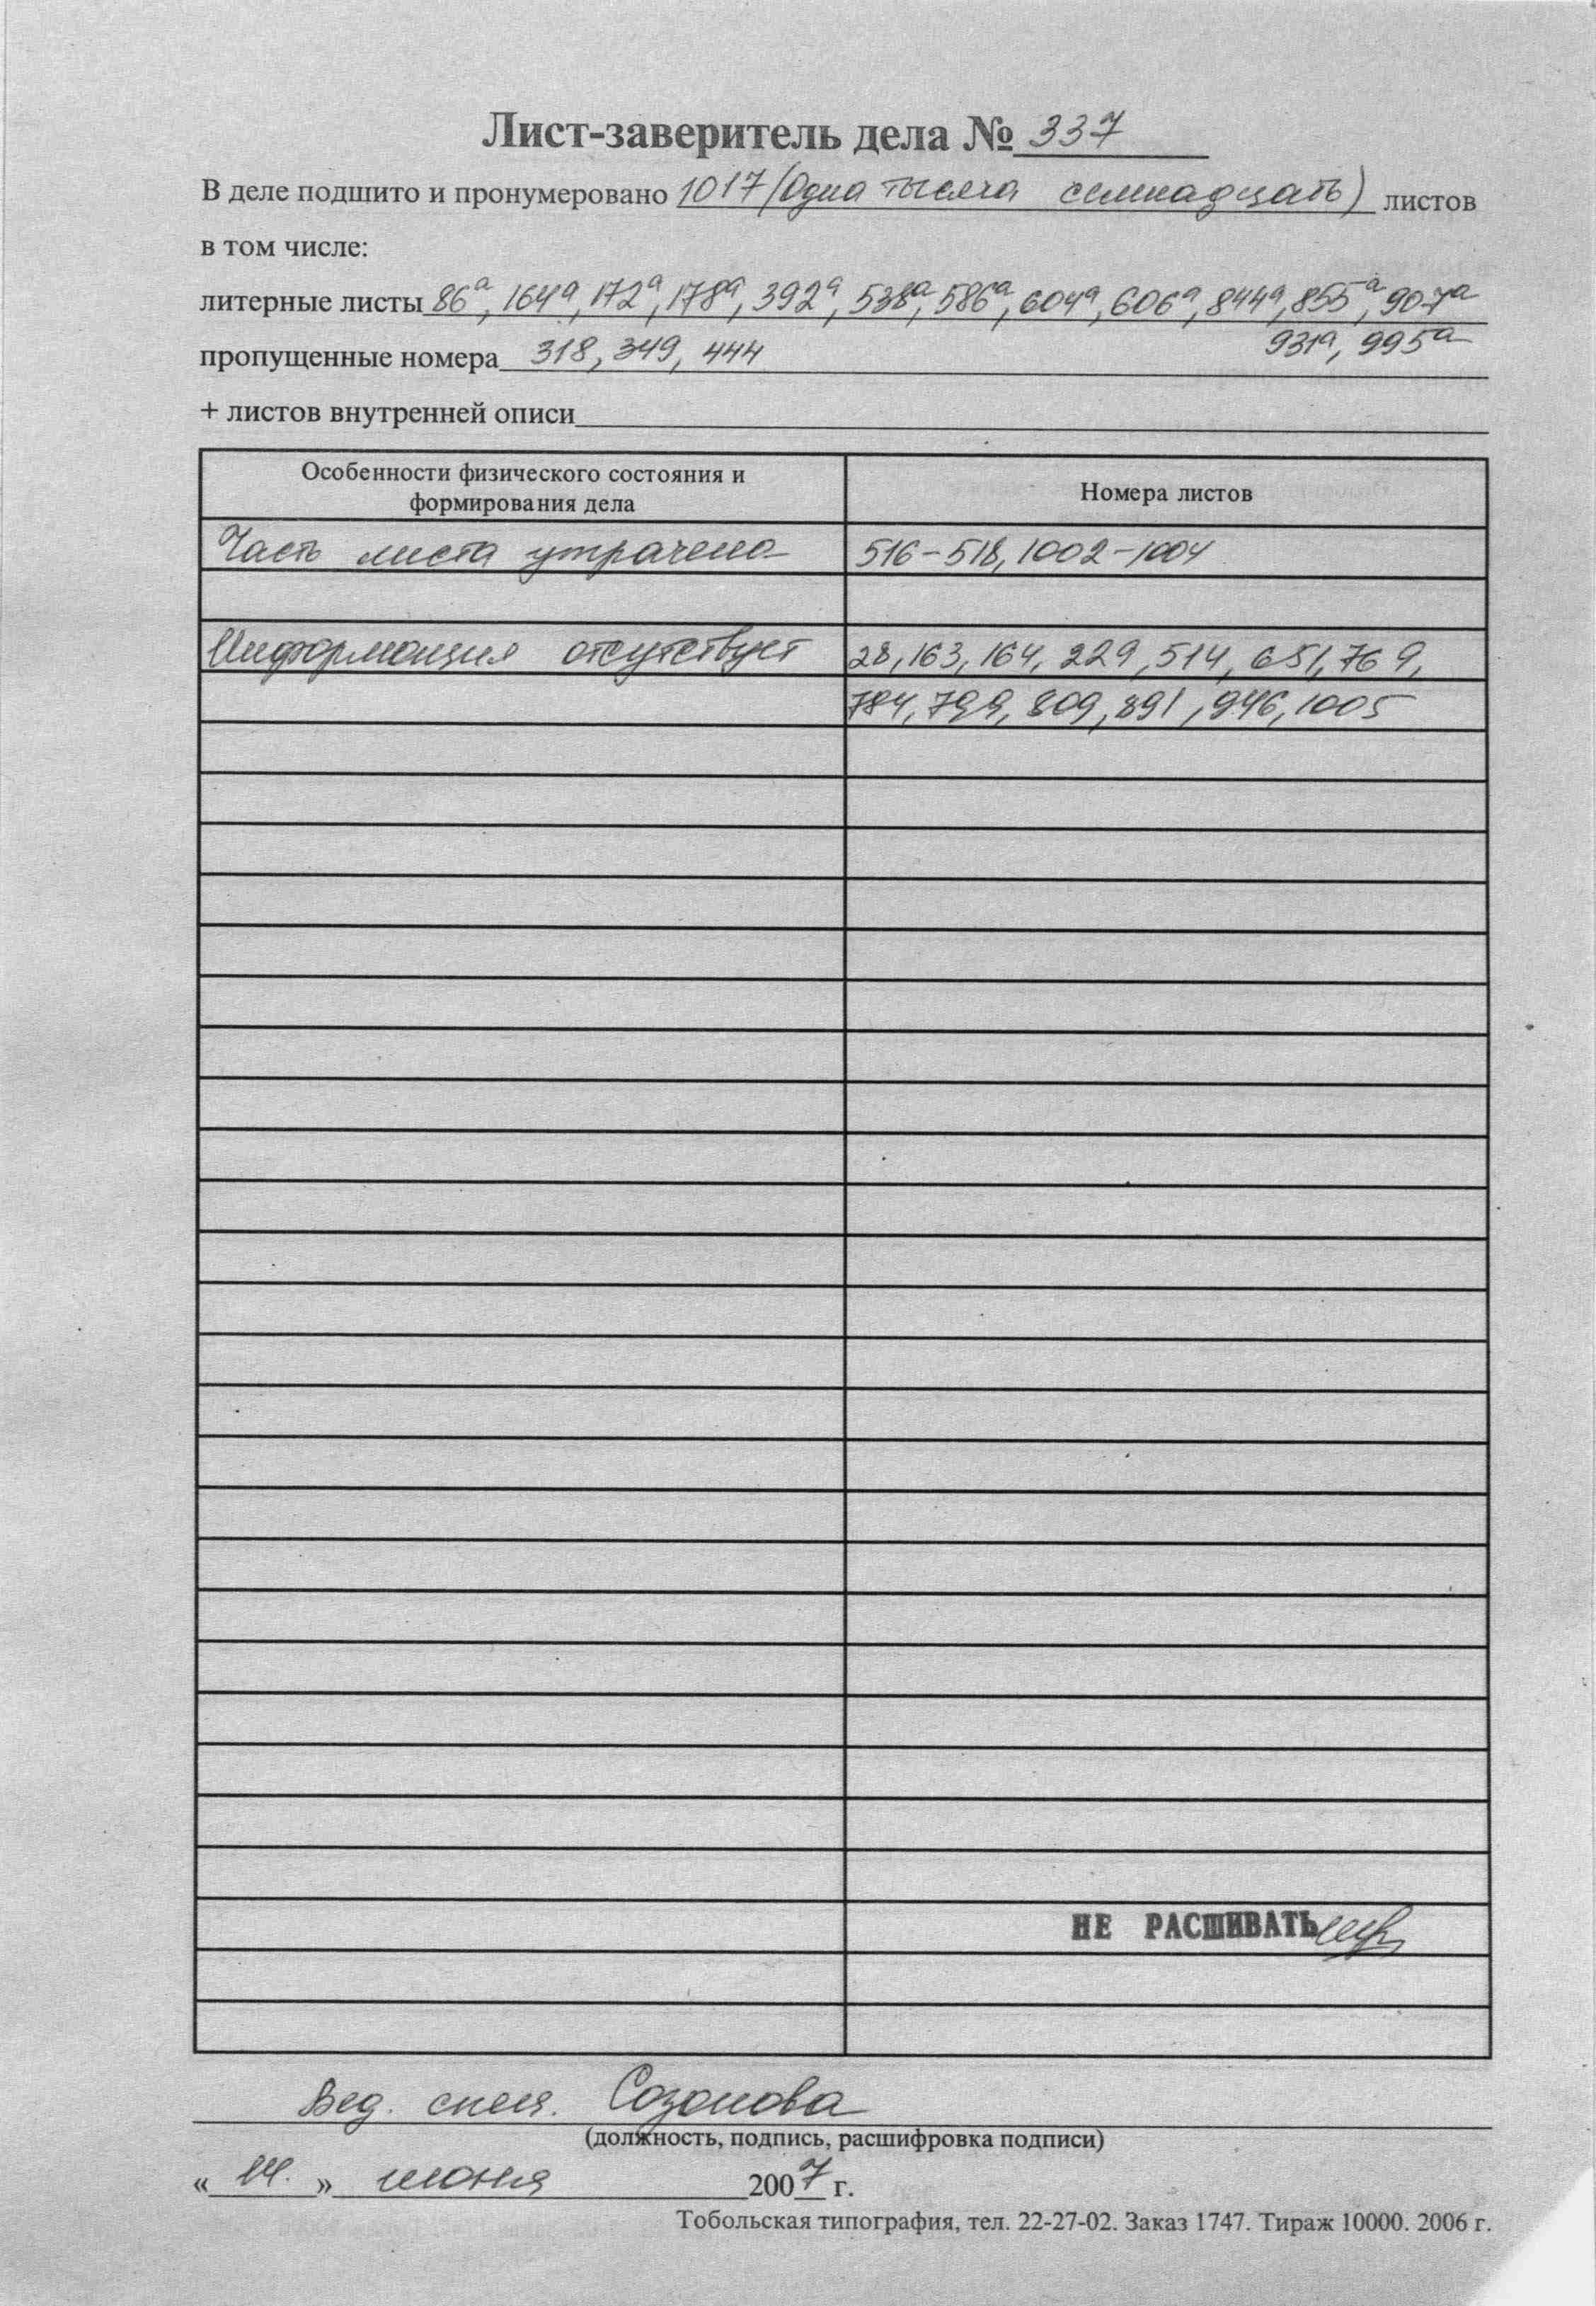 Лист-заверитель дела № 337
В деле подшито и пронумеровано 1017 (Одна тысяча семнадцать) листов
в том числе:
литерные листы 86а, 164а, 172а, 178а, 392а, 538а, 586а, 604а, 606а, 844а, 855а, 907а
931а, 995а
пропущенные номера 318, 349, 444
+ листов внутренней описи
Особенности физического состояния и
формирования дела
Номера листов
Часть листа утрачена 516-518, 1002-1004
Информация отсутствует 28, 163, 164, 229, 514, 651, 769,
784, 799, 809, 891, 946, 1005
НЕ РАСШИВАТЬ
Вед. спец. Созонова
(должность, подпись, расшифровка подписи)
« 14. » июня 2007 г.
Тобольская типография, тел. 22-27-02. Заказ 1747. Тираж 10000. 2006 г.